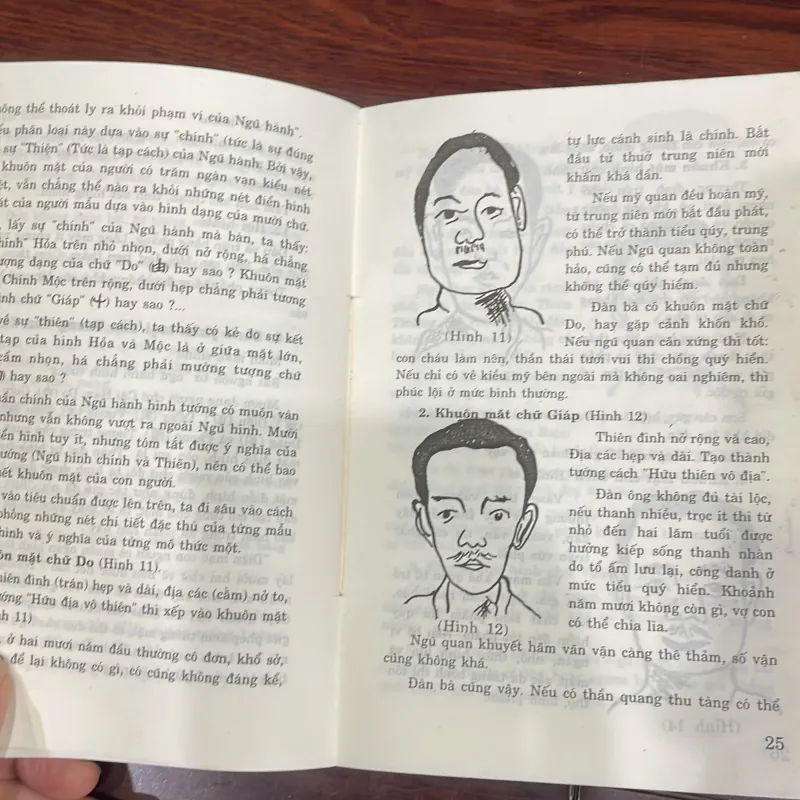 thể thoát ly ra khỏi phạm vi của Ngũ hành".
phân loại này dựa vào sự "chính" (tức là sự đúng
sự "Thiện" (Tức là tạp cách) của Ngũ hành. Bởi vậy,
khuôn mặt của người có trăm ngàn vạn kiểu nét
vẫn chẳng thể nào ra khỏi những nét điển hình
của người mẫu dựa vào hình dạng của mười chữ.
lấy sự "chính" của Ngũ hành mà bàn, ta thấy:
Hỏa trên nhỏ nhọn, dưới nở rộng, há chẳng
dạng của chữ "Do" (由) hay sao ? Khuôn mặt
Chính Mộc trên rộng, dưới hẹp chẳng phải tương
chữ "Giáp" hay sao ?...
về sự "thiên" (tạp cách), ta thấy có kẻ do sự kết
tạp của hình Hỏa và Mộc là ở giữa mặt lớn,
cằm nhọn, há chẳng phải mường tượng chữ
hay sao ?
chính của Ngũ hành hình tướng có muôn vàn
nhưng vẫn không vượt ra ngoài Ngũ hình. Mười
hình tuy ít, nhưng tóm tắt được ý nghĩa của
(Ngũ hình chính và Thiên), nên có thể bao
khuôn mặt của con người.
vào tiêu chuẩn được lên trên, ta đi sâu vào cách
phỏng những nét chi tiết đặc thù của từng mẫu
hình và ý nghĩa của từng mô thức một.
mặt chữ Do (Hình 11).
đình (trán) hẹp và dài, địa các (cằm) nở to,
"Hữu địa vô thiên" thì xếp vào khuôn mặt
11)
ở hai mươi năm đầu thường cô đơn, khổ sở,
để lại không có gì, có cũng không đáng kể,
tự lực cánh sinh là chính. Bắt
đầu từ thuở trung niên mới
khấm khá dần.
Nếu mỹ quan đều hoàn mỹ,
từ trung niên mới bắt đầu phát,
có thể trở thành tiểu qúy, trung
phú. Nếu Ngũ quan không toàn
hảo, cũng có thể tạm đủ nhưng
không thể qúy hiểm.
Đàn bà có khuôn mặt chữ
Do, hay gặp cảnh khốn khổ.
(Hình 11)
Nếu ngũ quan cân xứng thì tốt:
con cháu làm nên, thần thái tươi vui thì chồng quý hiển.
Nếu chỉ có vẻ kiều mỹ bên ngoài mà không oai nghiêm, thì
phúc lội ở mức bình thường.
2. Khuôn mặt chữ Giáp (Hình 12)
Thiên đình nở rộng và cao,
Địa các hẹp và dài. Tạo thành
tướng cách "Hữu thiên vô địa".
Đàn ông không đủ tài lộc,
nếu thanh nhiều, trọc ít thì từ
nhỏ đến hai lăm tuổi được
hưởng kiếp sống thanh nhàn
do tổ ấm lưu lại, công danh ở
mức tiểu quý hiển. Khoảnh
năm mươi không còn gì, vợ con
có thể chia lìa.
(Hình 12)
Ngũ quan khuyết hãm vãn vận càng thê thảm, số vận
cũng không khá.
Đàn bà cũng vậy. Nếu có thần quang thu tàng có thể
25